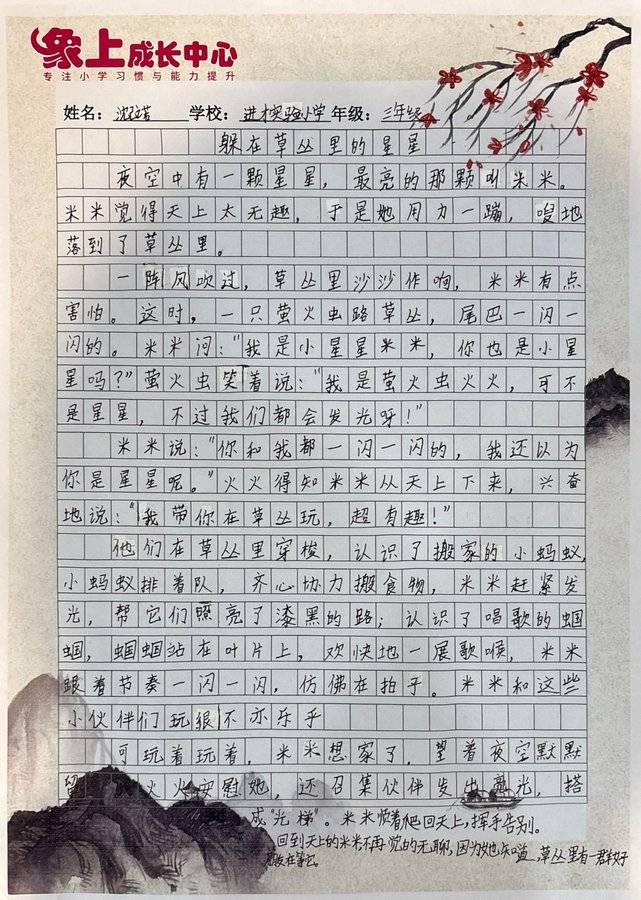 象上成长中心
专注小学习惯与能力提升
姓名： 沈 学校： 进才实验小学 年级： 三年级
躲在草丛里的星星
夜空中有一颗星星，最亮的那颗叫米米。
米米觉得天上太无趣，于是她用力一蹦，嗖地
落到了草丛里。
一阵风吹过，草丛里沙沙作响，米米有点
害怕。这时，一只萤火虫路草丛，尾巴一闪一
闪的。米米问：“我是小星星米米，你也是小星
星吗？”萤火虫笑着说：“我是萤火虫火火，可不
是星星，不过我们都会发光呀！”
米米说：“你和我都一闪一闪的，我还以为
你是星星呢。”火火得知米米从天上下来，兴奋
地说：“我带你在草丛玩，超有趣！”
他们在草丛里穿梭，认识了搬家的小蚂蚁，
小蚂蚁排着队，齐心协力搬食物，米米赶紧发
光，帮它们照亮了漆黑的路；认识了唱歌的蝈
蝈，蝈蝈站在叶片上，欢快地一展歌喉，米米
跟着节奏一闪一闪，仿佛在拍子。米米和这些
小伙伴们玩很不亦乐乎
可玩着玩着，米米想家了，望着夜空默默
火火安慰她，还召集伙伴发出亮光，搭
成“光梯”。米米顺着爬回天上，挥手告别。
回到天上的米米不再觉的无聊，因为她知道，草丛里有一群好
在等它